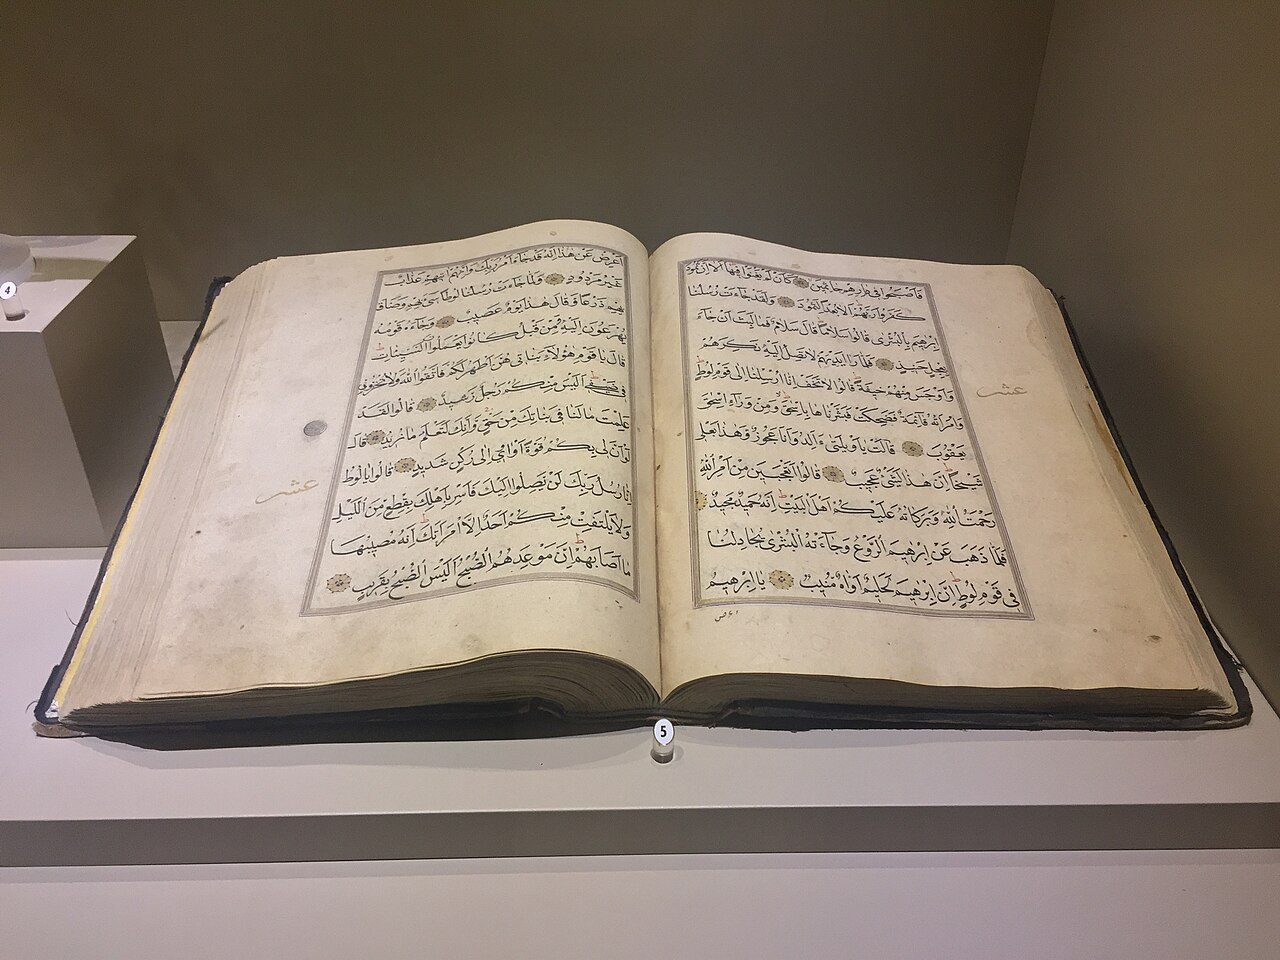 فاصبحوا في ديارهم جاثمين كان لم يغنوا فيها الا ان ثمود
كفروا ربهم الا بعدا لثمود ولقد جاءت رسلنا
ابرهيم بالبشرى قالوا سلاما قال سلام فما لبث ان جاء
بعجل حنيذ فلما راا ايديهم لا تصل اليه نكرهم
واوجس منهم خيفة قالوا لا تخف انا ارسلنا الى قوم لوط
وامراته قائمة فضحكت فبشرناها باسحق ومن وراء اسحق
يعقوب قالت يا ويلتى ءالد وانا عجوز وهذا بعلي
شيخا ان هذا لشئ عجيب قالوا اتعجبين من امر الله
رحمت الله وبركاته عليكم اهل البيت انه حميد مجيد
فلما ذهب عن ابرهيم الروع وجاءته البشرى يجادلنا
في قوم لوط ان ابرهيم لحليم اواه منيب يا ابرهيم
عشر
اعرض عن هذا انه قد جاء امر ربك وانهم اتيهم عذاب
غير مردود ولما جاءت رسلنا لوطا سئ بهم وضاق
بهم ذرعا وقال هذا يوم عصيب وجاءه قومه
يهرعون اليه ومن قبل كانوا يعملون السيئات
قال يا قوم هؤلاء بناتي هن اطهر لكم فاتقوا الله ولا تخزون
في ضيفي اليس منكم رجل رشيد قالوا لقد
علمت ما لنا في بناتك من حق وانك لتعلم ما نريد قال
لو ان لي بكم قوة او اوي الى ركن شديد قالوا يا لوط
انا رسل ربك لن يصلوا اليك فاسر باهلك بقطع من الليل
ولا يلتفت منكم احد الا امراتك انه مصيبها
ما اصابهم ان موعدهم الصبح اليس الصبح بقريب
عشر
4
5